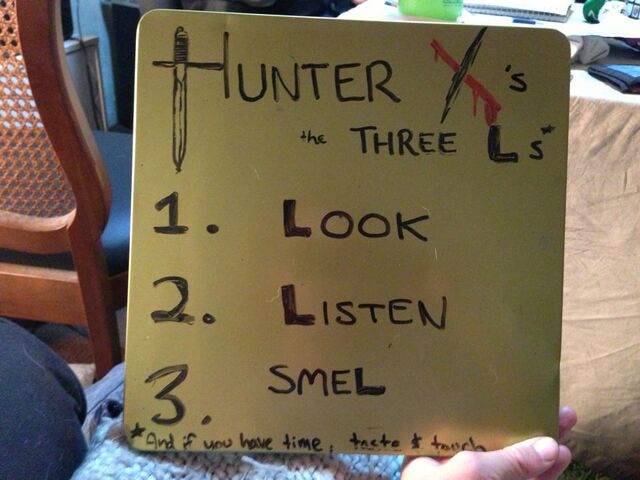 HUNTER X's
the THREE Ls*
1. LOOK
2. LISTEN
3. SMEL
*And if you have time, taste & touch